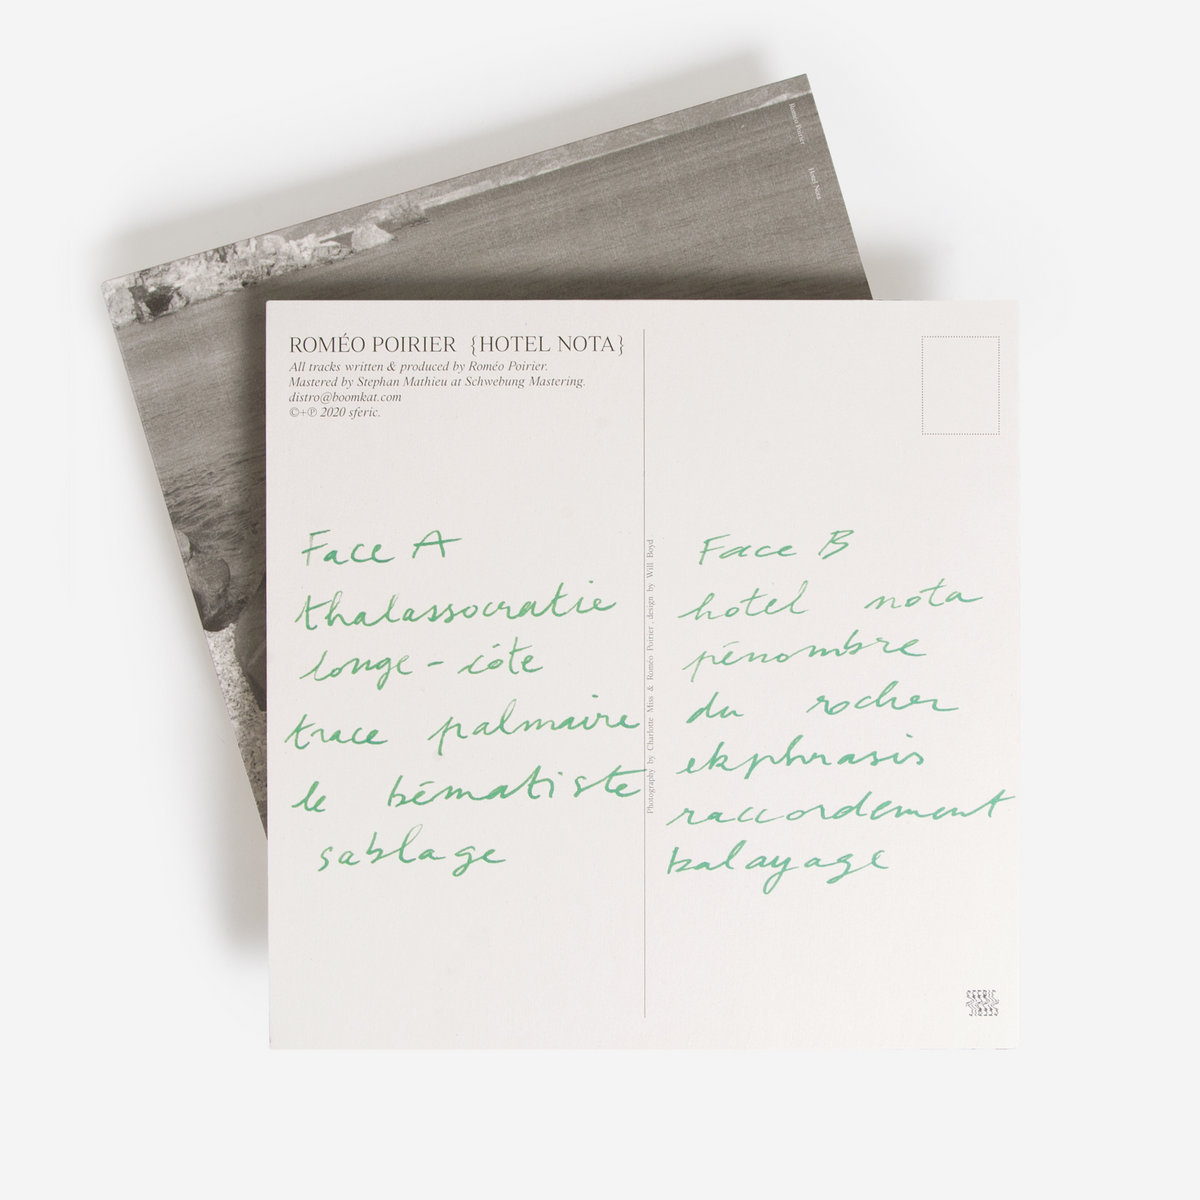 Roméo Poirier
Hotel Nota
ROMÉO POIRIER {HOTEL NOTA}
All tracks written & produced by Roméo Poirier.
Mastered by Stephan Mathieu at Schwebung Mastering.
distro@boomkat.com
©+℗ 2020 sferic.
Face A
thalassocratie
longe-côte
trace palmaire
le bématiste
sablage
Photography by Charlotte Miss & Roméo Poirier, design by Will Boyd
Face B
hotel nota
pénombre
du rocher
ekphrasis
raccordement
balayage
SFERIC